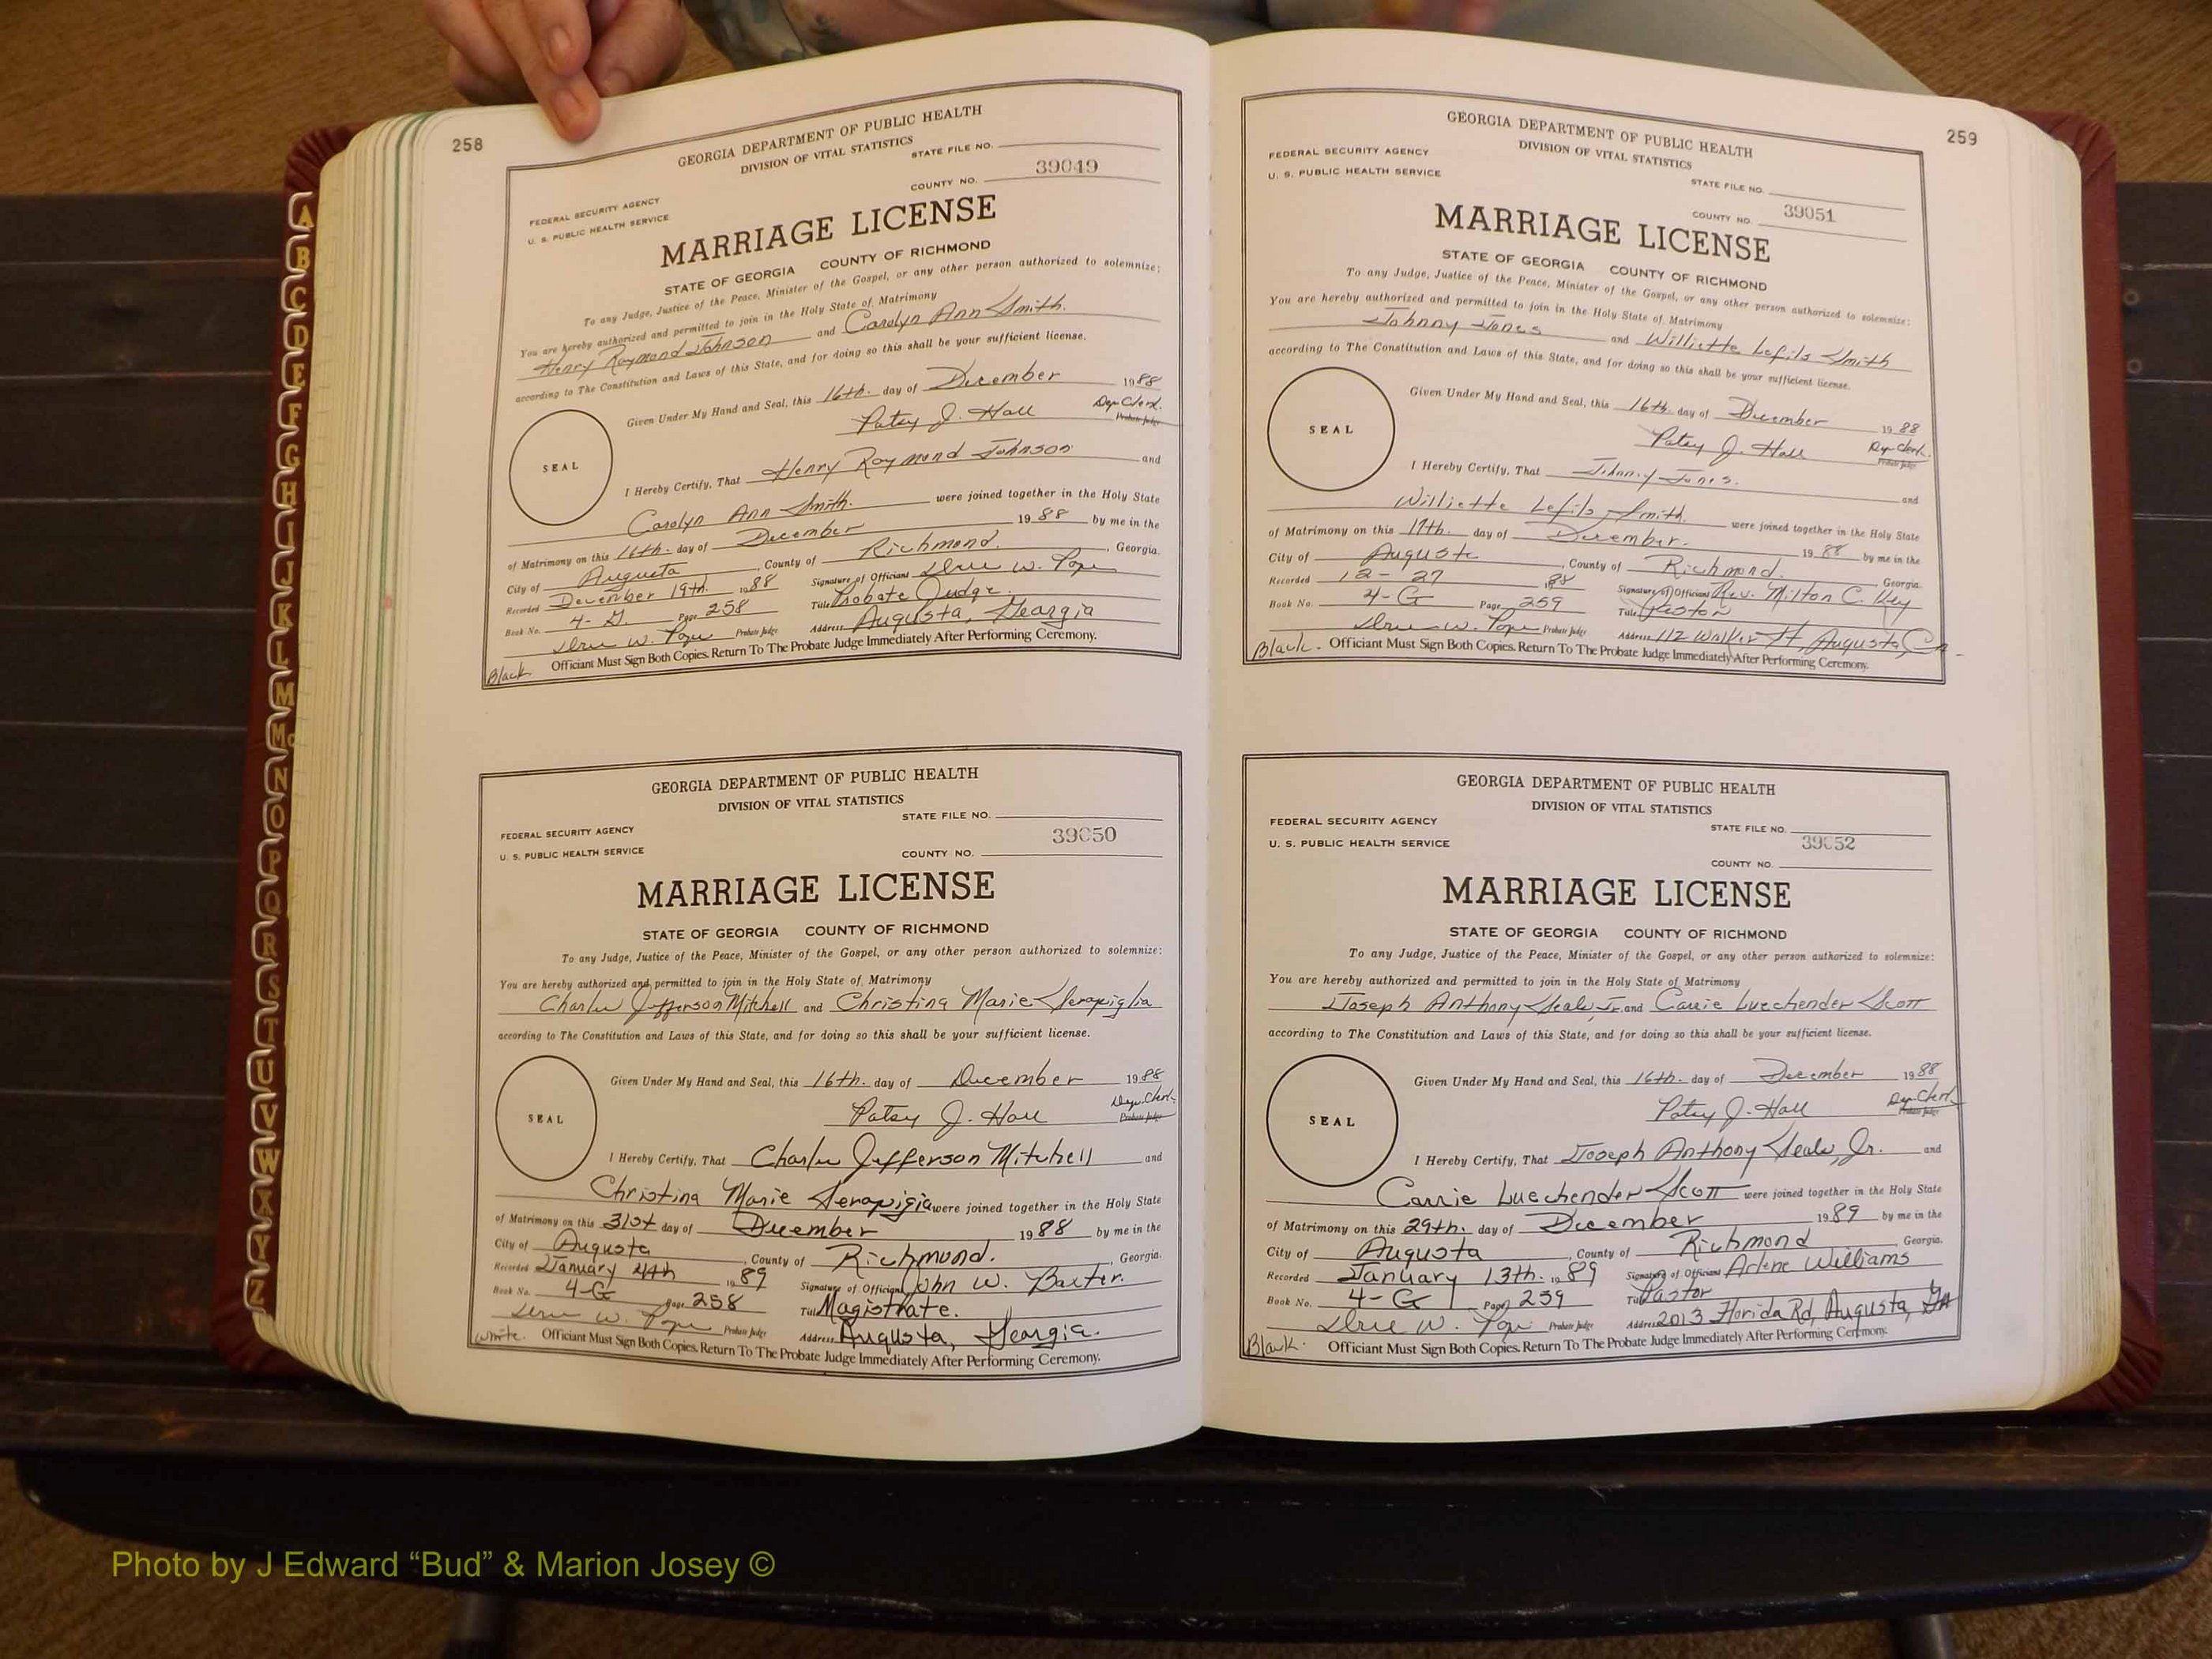 258
GEORGIA DEPARTMENT OF PUBLIC HEALTH
DIVISION OF VITAL STATISTICS
STATE FILE NO.
39049
COUNTY NO.
FEDERAL SECURITY AGENCY
U. S. PUBLIC HEALTH SERVICE
MARRIAGE LICENSE
STATE OF GEORGIA COUNTY OF RICHMOND
To any Judge, Justice of the Peace, Minister of the Gospel, or any other person authorized to solemnize:
You are hereby authorized and permitted to join in the Holy State of Matrimony
Henry Raymond Johnson and Carolyn Ann Smith.
according to The Constitution and Laws of this State, and for doing so this shall be your sufficient license.
Given Under My Hand and Seal, this 16th. day of December 1988
Patsy J. Hall Dep Clerk.
Probate Judge
SEAL
I Hereby Certify, That Henry Raymond Johnson and
Carolyn Ann Smith. were joined together in the Holy State
of Matrimony on this 16th. day of December 1988 by me in the
City of Augusta, County of Richmond., Georgia.
Recorded December 19th. 1988 Signature of Officiant W. Pope
Book No. 4-G. Page 258 Title Probate Judge.
W. Pope Probate Judge Address Augusta, Georgia
Black. Officiant Must Sign Both Copies. Return To The Probate Judge Immediately After Performing Ceremony.
GEORGIA DEPARTMENT OF PUBLIC HEALTH
DIVISION OF VITAL STATISTICS
STATE FILE NO.
FEDERAL SECURITY AGENCY
39050
U. S. PUBLIC HEALTH SERVICE
COUNTY NO.
MARRIAGE LICENSE
STATE OF GEORGIA COUNTY OF RICHMOND
To any Judge, Justice of the Peace, Minister of the Gospel, or any other person authorized to solemnize:
You are hereby authorized and permitted to join in the Holy State of Matrimony
Charles Jefferson Mitchell and Christina Marie Serapiglia
according to The Constitution and Laws of this State, and for doing so this shall be your sufficient license.
Given Under My Hand and Seal, this 16th. day of December 1988
Patsy J. Hall Dep. Clerk.
Probate Judge
SEAL
I Hereby Certify, That Charles Jefferson Mitchell and
Christina Marie were joined together in the Holy State
of Matrimony on this 31st day of December 1988 by me in the
City of Augusta, County of Richmond., Georgia.
Recorded January 4th 1989 Signature of Officiant John W. Baxter.
Book No. 4-G Page 258 Title Magistrate.
W. Pope Probate Judge Address Augusta, Georgia.
White. Officiant Must Sign Both Copies. Return To The Probate Judge Immediately After Performing Ceremony.
259
GEORGIA DEPARTMENT OF PUBLIC HEALTH
FEDERAL SECURITY AGENCY
DIVISION OF VITAL STATISTICS
U. S. PUBLIC HEALTH SERVICE
STATE FILE NO.
COUNTY NO. 39051
MARRIAGE LICENSE
STATE OF GEORGIA COUNTY OF RICHMOND
To any Judge, Justice of the Peace, Minister of the Gospel, or any other person authorized to solemnize:
You are hereby authorized and permitted to join in the Holy State of Matrimony
Johnny Jones and Williette Lefils Smith
according to The Constitution and Laws of this State, and for doing so this shall be your sufficient license.
Given Under My Hand and Seal, this 16th. day of December 1988
Patsy J. Hall Dep Clerk.
Probate Judge
SEAL
I Hereby Certify, That Johnny Jones. and
Williette Lefils Smith. were joined together in the Holy State
of Matrimony on this 17th. day of December. 1988 by me in the
City of Augusta, County of Richmond., Georgia.
Recorded 12-27 1988 Signature of Officiant Rev. Milton C. Key
Book No. 4-G Page 259 Title Pastor
W. Pope Probate Judge Address 112 Walker St, Augusta, Ga.
Black. Officiant Must Sign Both Copies. Return To The Probate Judge Immediately After Performing Ceremony.
GEORGIA DEPARTMENT OF PUBLIC HEALTH
DIVISION OF VITAL STATISTICS
FEDERAL SECURITY AGENCY
STATE FILE NO.
U. S. PUBLIC HEALTH SERVICE
39052
COUNTY NO.
MARRIAGE LICENSE
STATE OF GEORGIA COUNTY OF RICHMOND
To any Judge, Justice of the Peace, Minister of the Gospel, or any other person authorized to solemnize:
You are hereby authorized and permitted to join in the Holy State of Matrimony
Joseph Anthony Seals, Jr. and Carrie Luechender Scott
according to The Constitution and Laws of this State, and for doing so this shall be your sufficient license.
Given Under My Hand and Seal, this 16th. day of December 1988
Patsy J. Hall Dep. Clerk.
Probate Judge
SEAL
I Hereby Certify, That Joseph Anthony Seals, Jr. and
Carrie Luechender Scott were joined together in the Holy State
of Matrimony on this 29th. day of December 1989 by me in the
City of Augusta, County of Richmond, Georgia.
Recorded January 13th. 1989 Signature of Officiant Arlene Williams
Book No. 4-G Page 259 Title Pastor
W. Pope Probate Judge Address 2013 Florida Rd, Augusta, GA
Black. Officiant Must Sign Both Copies. Return To The Probate Judge Immediately After Performing Ceremony.
A
B
C
D
E
F
G
H
I
J
K
L
M
Mc
N
O
P
Q
R
S
T
U
V
W
X
Y
Z
Photo by J Edward “Bud” & Marion Josey ©